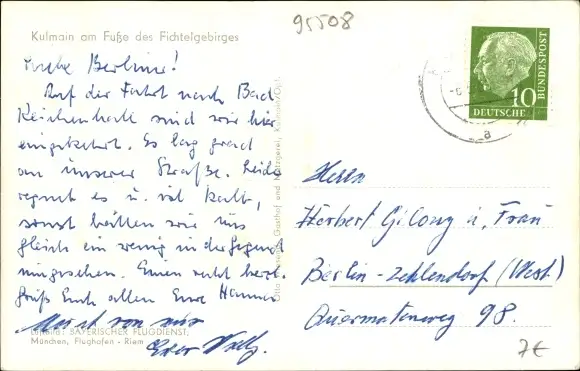 95508
Kulmain am Fuße des Fichtelgebirges
Liebe Berliner!
Auf der Fahrt nach Bad
Reichenhall sind wir hier
eingekehrt. Es lag grad
an unserer Straße. Leider
regnet es u. ist kalt,
sonst hätten wir uns
gleich ein wenig in der Gegend
umgesehen. Einen recht herzl.
Gruß Euch allen Eure Hanna
von mir
Euer
BAYERISCHER FLUGDIENST,
München, Flughafen - Riem
Gasthof und Metzgerei, Kulmain/Opf.
10
DEUTSCHE
BUNDESPOST
Herrn
Herbert Gilong u. Frau
Berlin-Zehlendorf (West)
98
7€